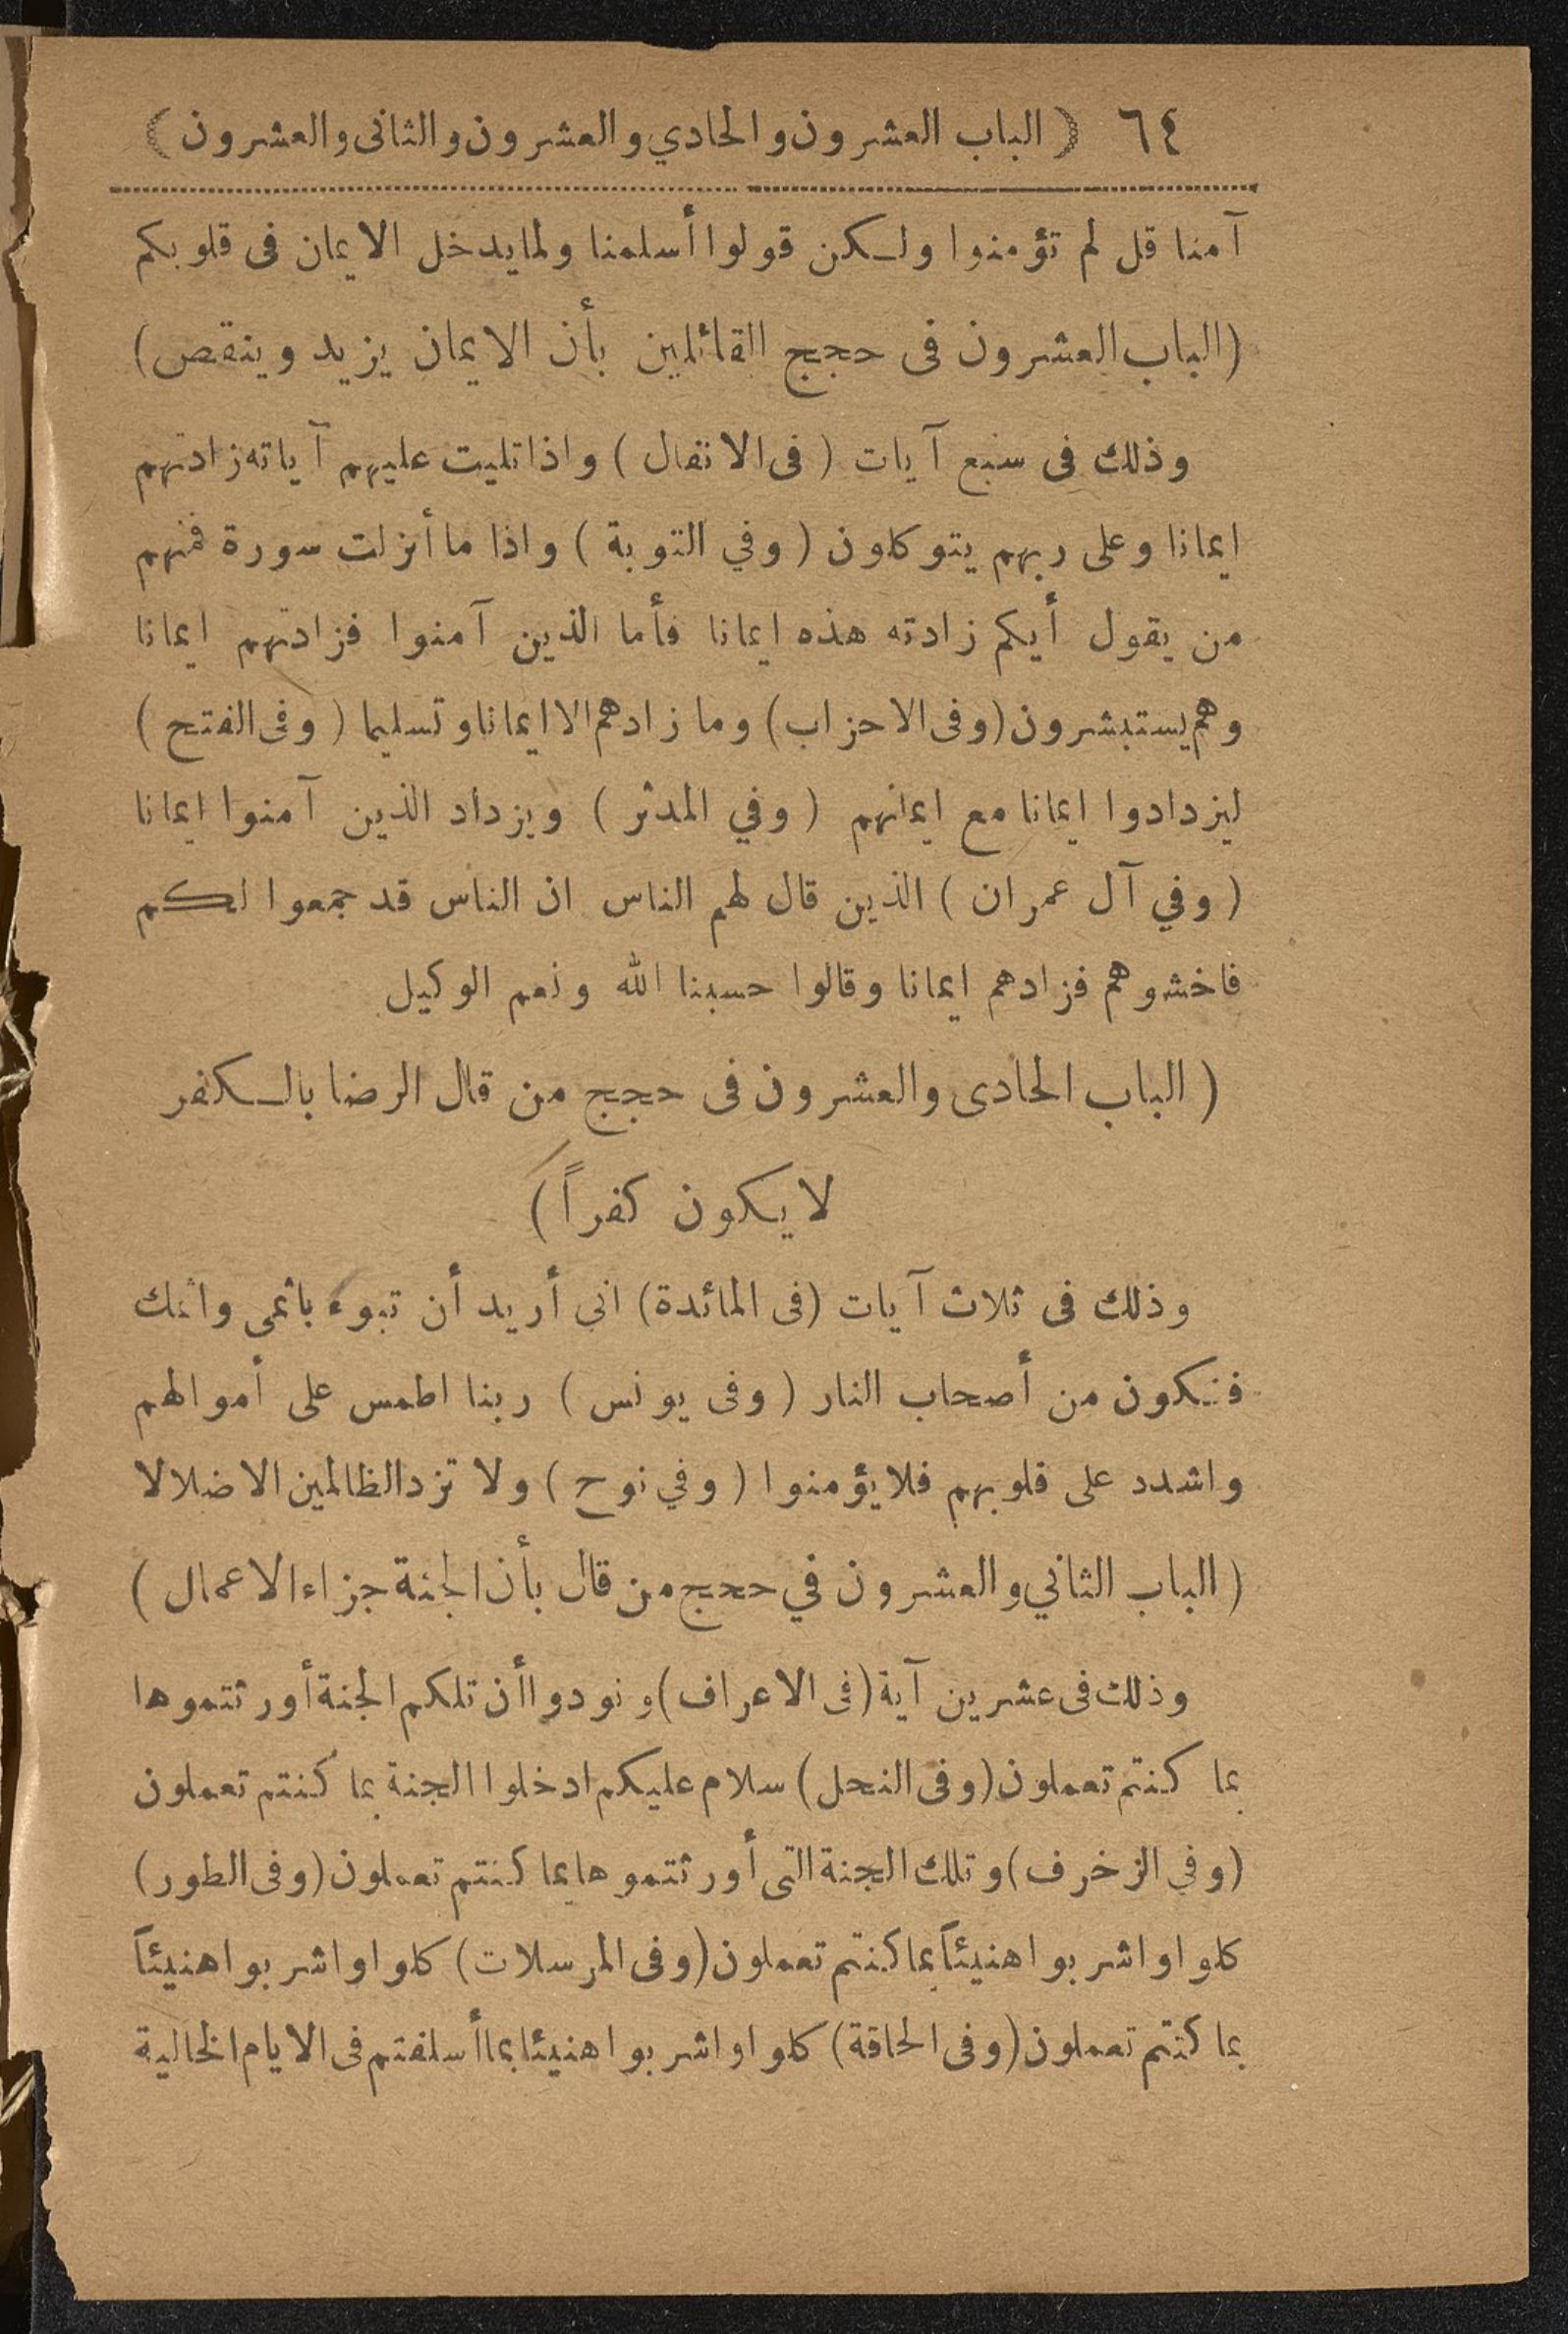 ٦٤ ( الباب العشرون والحادي والعشرون والثانى والعشرون )
آمنا قل لم تؤمنوا ولكن قولوا أسلمنا ولما يدخل الايمان فى قلوبكم
(الباب العشرون فى حجج القائلين بأن الايمان يزيد وينقص)
وذلك فى سبع آيات ( فى الانفال ) واذا تليت عليهم آياته زادتهم
ايمانا وعلى ربهم يتوكلون ( وفي التوبة ) واذا ما أنزلت سورة فمنهم
من يقول أيكم زادته هذه ايمانا فأما الذين آمنوا فزادتهم ايمانا
وهم يستبشرون (وفى الاحزاب) وما زادهم الا ايمانا وتسليما ( وفى الفتح )
ليزدادوا ايمانا مع ايمانهم ( وفي المدثر ) ويزداد الذين آمنوا ايمانا
( وفي آل عمران ) الذين قال لهم الناس ان الناس قد جمعوا لكم
فاخشوهم فزادهم ايمانا وقالوا حسبنا الله ونعم الوكيل
( الباب الحادى والعشرون فى حجج من قال الرضا بالكفر
لا يكون كفراً )
وذلك فى ثلاث آيات (فى المائدة) انى أريد أن تبوء باثمى واثمك
فتكون من أصحاب النار ( وفى يونس ) ربنا اطمس على أموالهم
واشدد على قلوبهم فلا يؤمنوا ( وفي نوح ) ولا تزد الظالمين الا ضلالا
( الباب الثاني والعشرون في حجج من قال بأن الجنة جزاء الاعمال )
وذلك فى عشرين آية (فى الاعراف) ونودوا أن تلكم الجنة أورثتموها
بما كنتم تعملون (وفى النحل) سلام عليكم ادخلوا الجنة بما كنتم تعملون
(وفي الزخرف) وتلك الجنة التى أورثتموها بما كنتم تعملون (وفى الطور)
كلوا واشربوا هنيئاً بما كنتم تعملون (وفى المرسلات) كلوا واشربوا هنيئاً
بما كنتم تعملون (وفى الحاقة) كلوا واشربوا هنيئا بما أسلفتم فى الايام الخالية